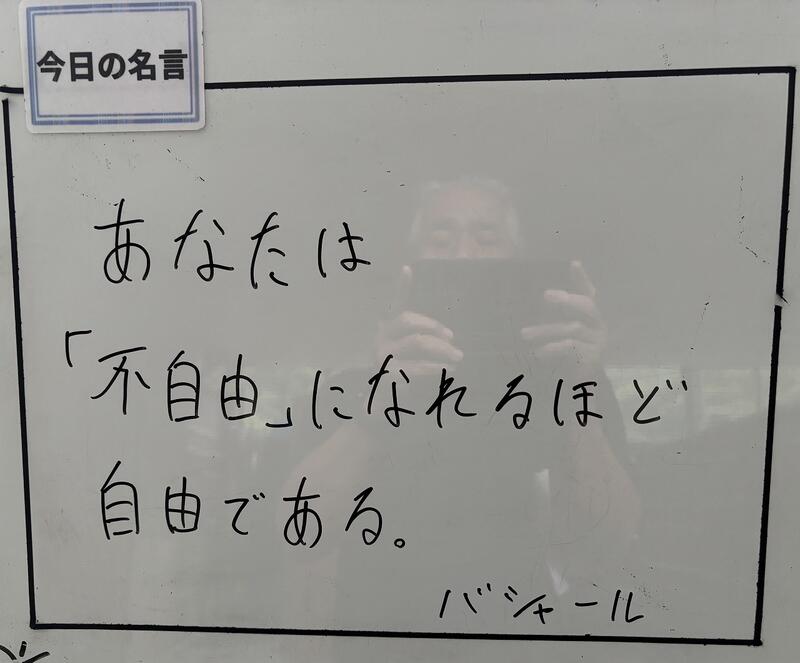 今日の名言
あなたは
「不自由」になれるほど
自由である。
バシャール